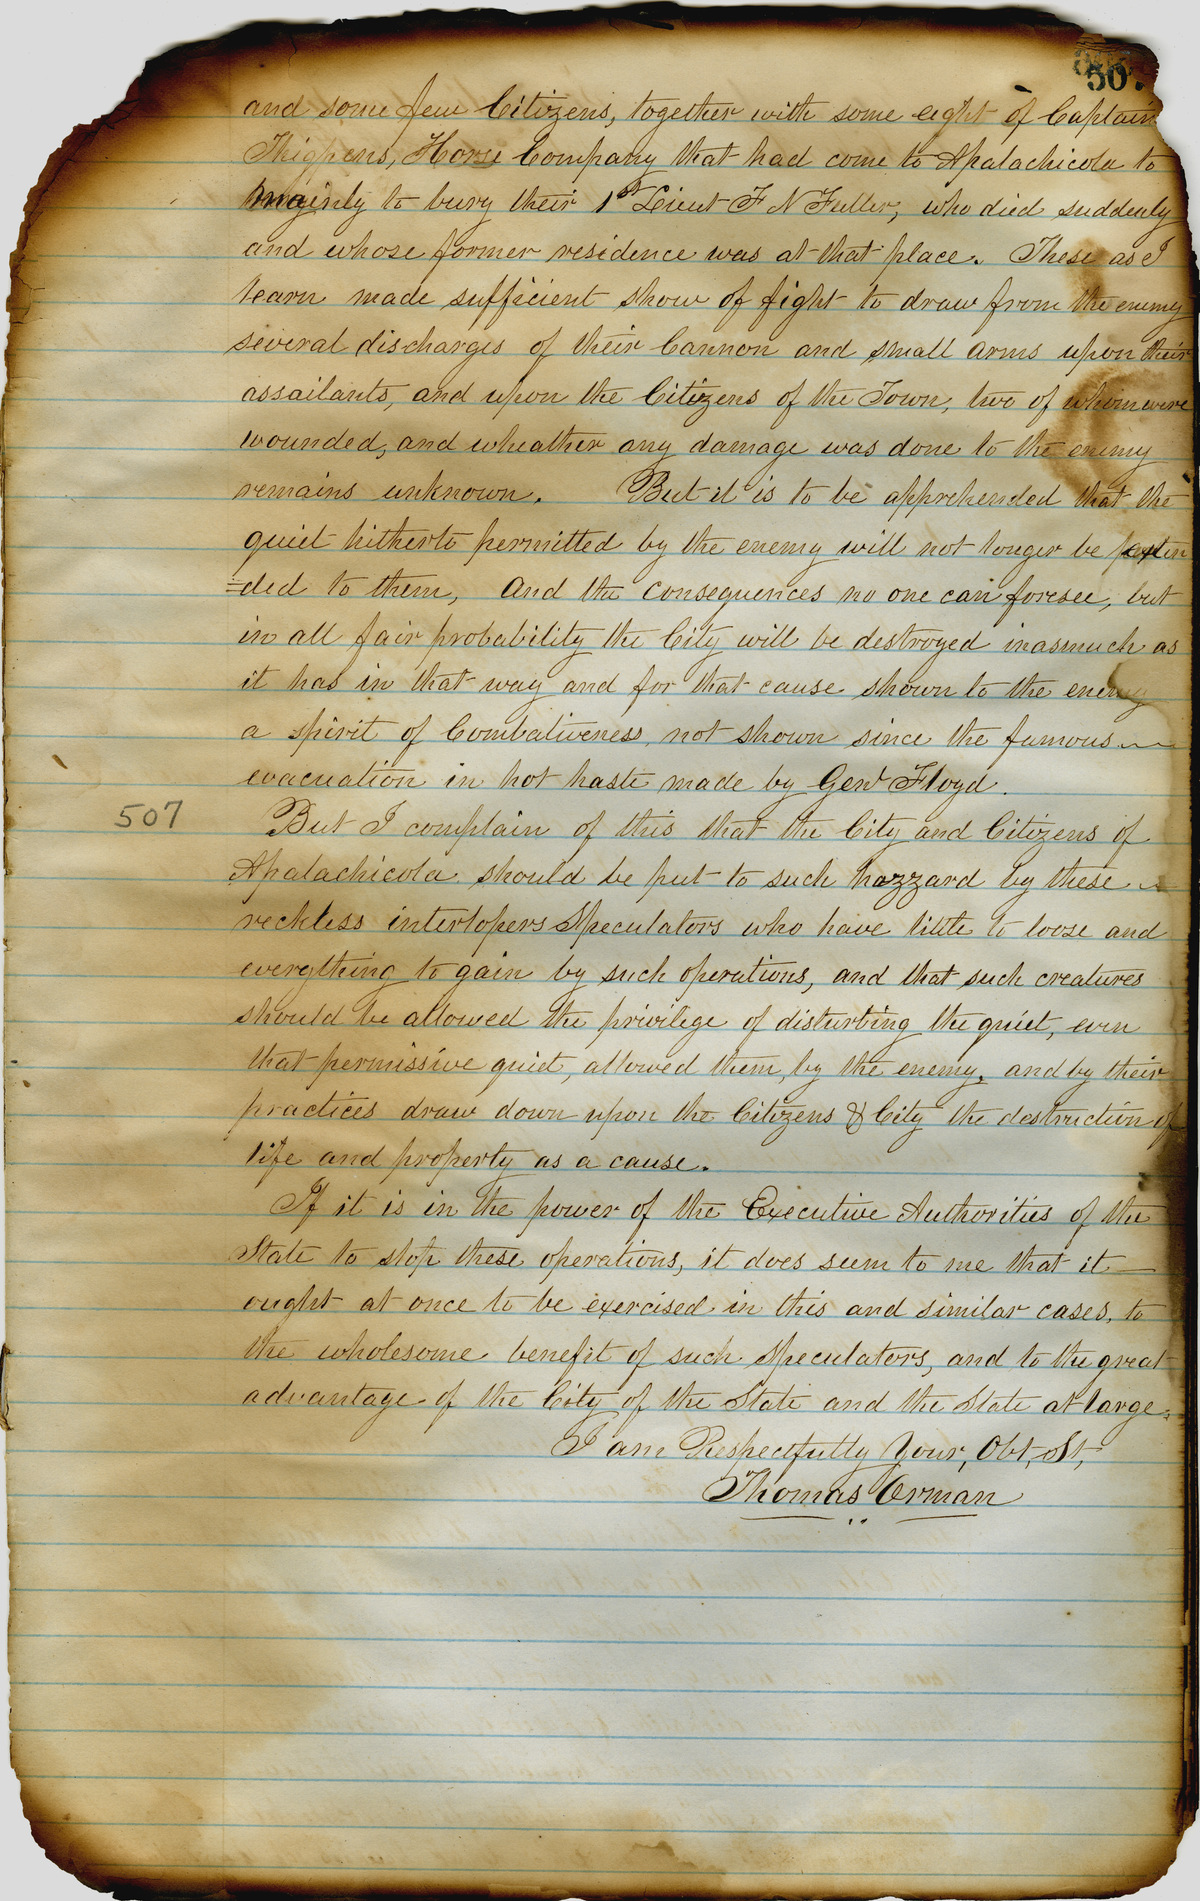 507
and some few Citizens, together with some eight of Captain
Thigpens, Horse Company that had come to Apalachicola to
mainly to bury their 1st Lieut F N Fuller, who died suddenly
and whose former residence was at that place. These as I
learn made sufficient show of fight to draw from the enemy
several discharges of their Cannon and small arms upon their
assailants, and upon the Citizens of the Town, two of whom were
wounded, and wheather any damage was done to the enemy
remains unknown. But it is to be apprehended that the
quiet hitherto permitted by the enemy will not longer be exten
=ded to them, and the consequences no one can foresee, but
in all fair probability the City will be destroyed inasmuch as
it has in that way and for that cause shown to the enemy
a spirit of Combativeness, not shown since the famous
evacuation in hot haste made by Genl Floyd.
507
But I complain of this that the City and Citizens of
Apalachicola should be put to such hazzard by these
reckless interlopers Speculators who have little to loose and
everything to gain by such operations, and that such creatures
should be allowed the privilege of disturbing the quiet, even
that permissive quiet, allowed them, by the enemy, and by their
practices draw down upon the Citizens & City the destruction of
life and property as a cause.
If it is in the power of the Executive Authorities of the
State to stop these operations, it does seem to me that it
ought at once to be exercised in this and similar cases, to
the wholesome benefit of such Speculators, and to the great
advantage of the City of the State and the State at large.
I am Respectfully Your, Obt, St,
Thomas Orman